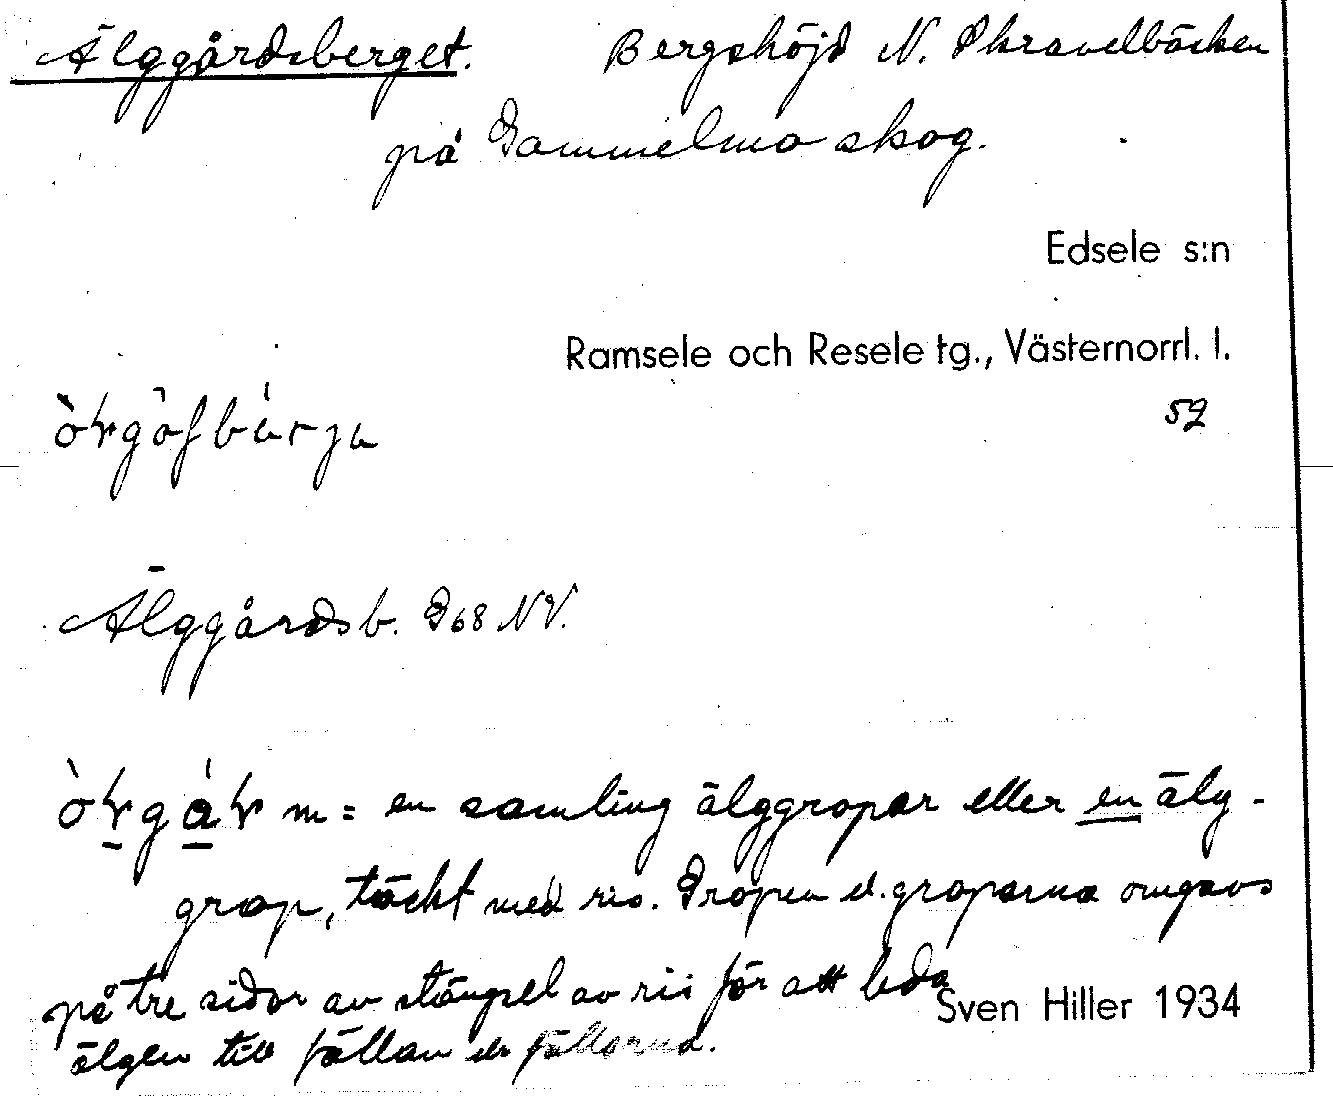 Älggårdsberget. Bergshöjd N. Skravelbäcken
på Gammelmo skog.
Edsele s:n
Ramsele och Resele tg., Västernorrl. l.
52
Älggårdsb. G68 NV.
m = en samling älggropar eller en älg-
grop, täckt med ris. Gropen el. groparna omgavs
på tre sidor av stängsel av ris för att leda
Sven Hiller 1934
älgen till fällan el. fällorna.